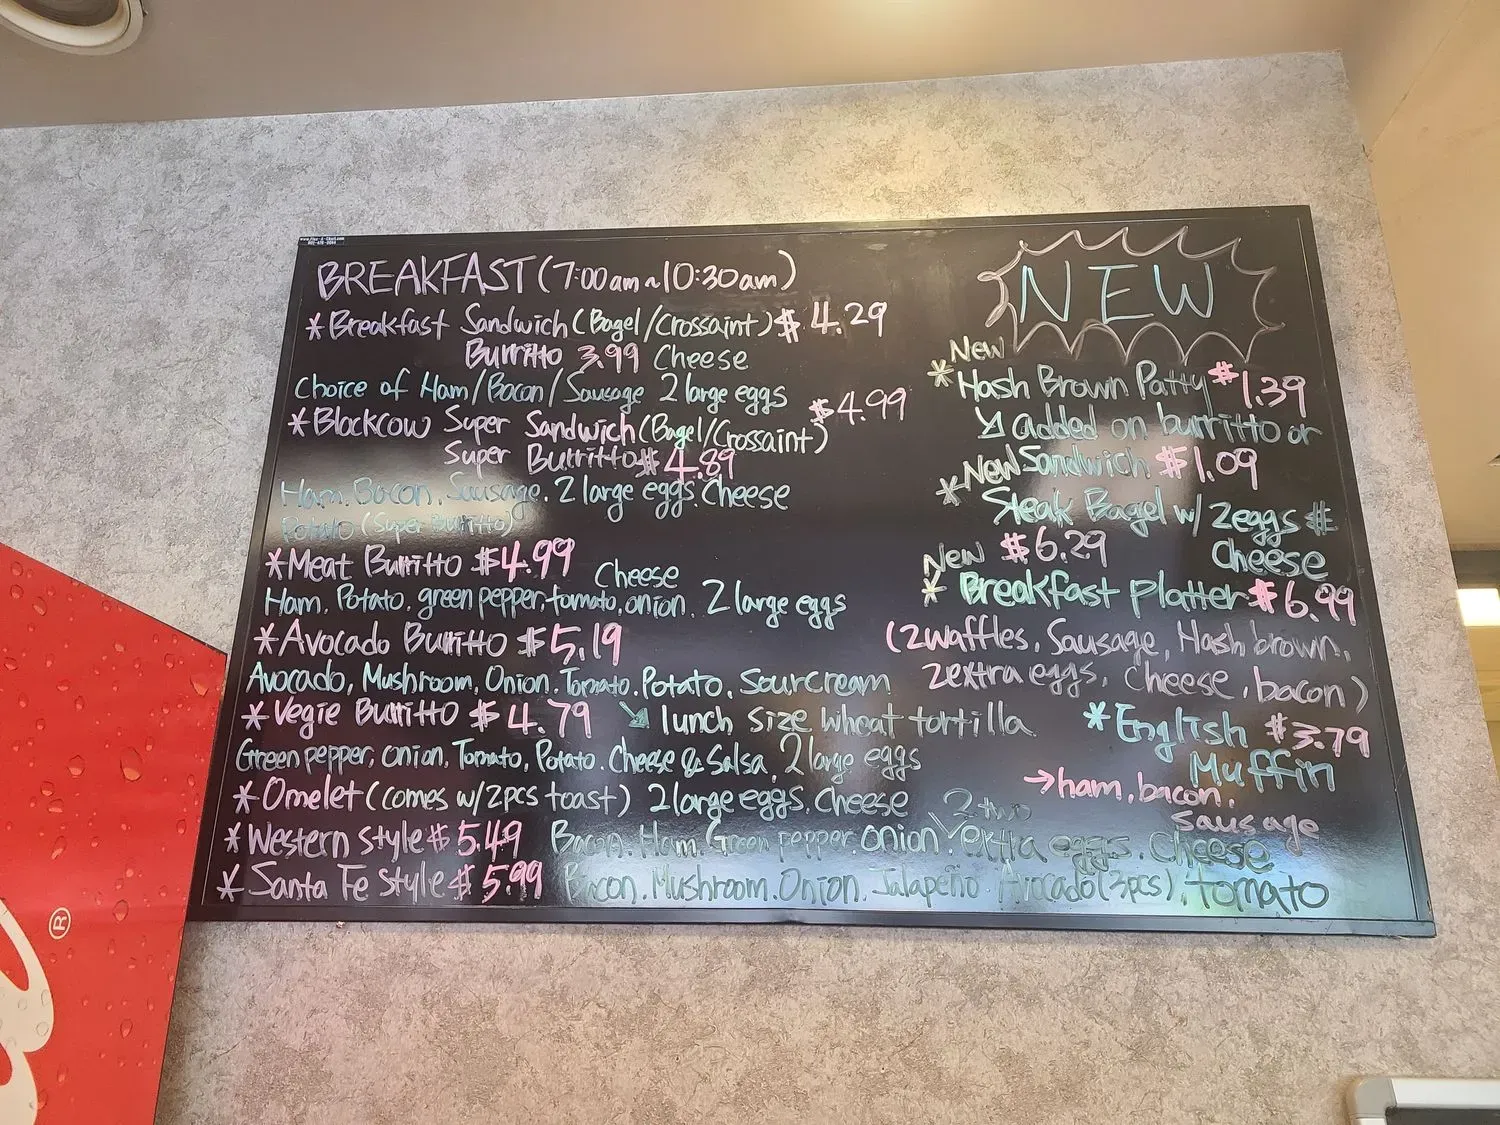 BREAKFAST (7:00am~10:30am)
*Breakfast Sandwich (Bagel/Crossaint) $4.29
Burritto 3.99 Cheese
Choice of Ham/Bacon/Sausage 2 large eggs
*Blackcow Super Sandwich (Bagel/Crossaint) $4.99
Super Burritto $4.89
Ham. Bacon. Sausage. 2 large eggs. Cheese
Potato (Super Burritto)
*Meat Burritto $4.99 Cheese
Ham. Potato. green pepper. tomato. onion. 2 large eggs
*Avocado Burritto $5.19
Avocado, Mushroom, Onion. Tomato. Potato. sourcream
*Vegie Burritto $4.79 ↘ lunch size wheat tortilla
Green pepper, onion, Tomato, Potato. Cheese & Salsa, 2 large eggs
*Omelet (comes w/2pcs toast) 2 large eggs. Cheese
*Western style $5.49 Bacon. Ham. Green pepper. onion. 2 two extra eggs. Cheese
*Santa Fe style $5.99 Bacon. Mushroom. Onion. Jalapeño. Avocado (3pcs), tomato
NEW
New
*Hash Brown Patty $1.39
↘ added on burritto or
Sandwich $1.09
New
*Steak Bagel w/ 2eggs #
$6.29 Cheese
New
*Breakfast Platter $6.99
(2waffles, Sausage, Hash brown,
2extra eggs, cheese, bacon)
*English $3.79
Muffin
→ham, bacon,
sausage
www.Flex-A-Chart.com
®